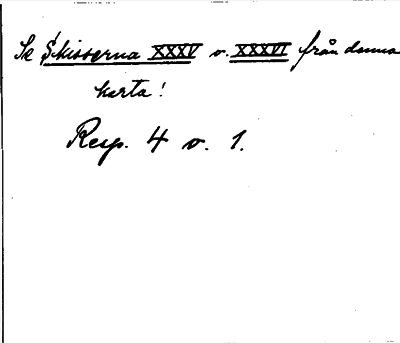 Se Skisserna XXXV o. XXXVI från denna
karta!
Resp. 4 o. 1.